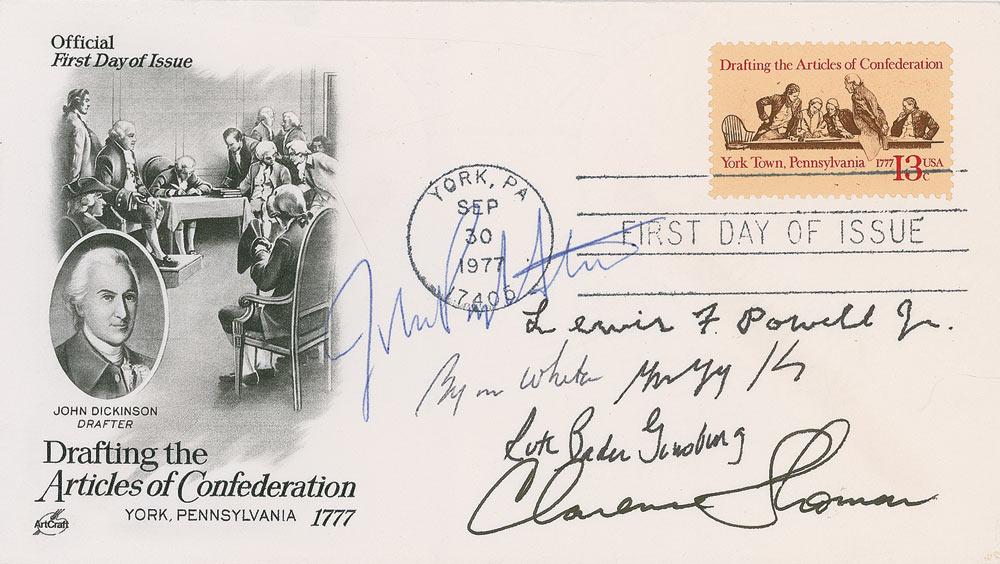 Official
First Day of Issue
Drafting the Articles of Confederation
York Town, Pennsylvania 1777 13c USA
YORK, PA
SEP
30
1977
17405
FIRST DAY OF ISSUE
John
Lewis F. Powell Jr.
Byron White
Ruth Bader Ginsburg
Clarence Thomas
JOHN DICKINSON
DRAFTER
Drafting the
Articles of Confederation
YORK, PENNSYLVANIA 1777
ArtCraft